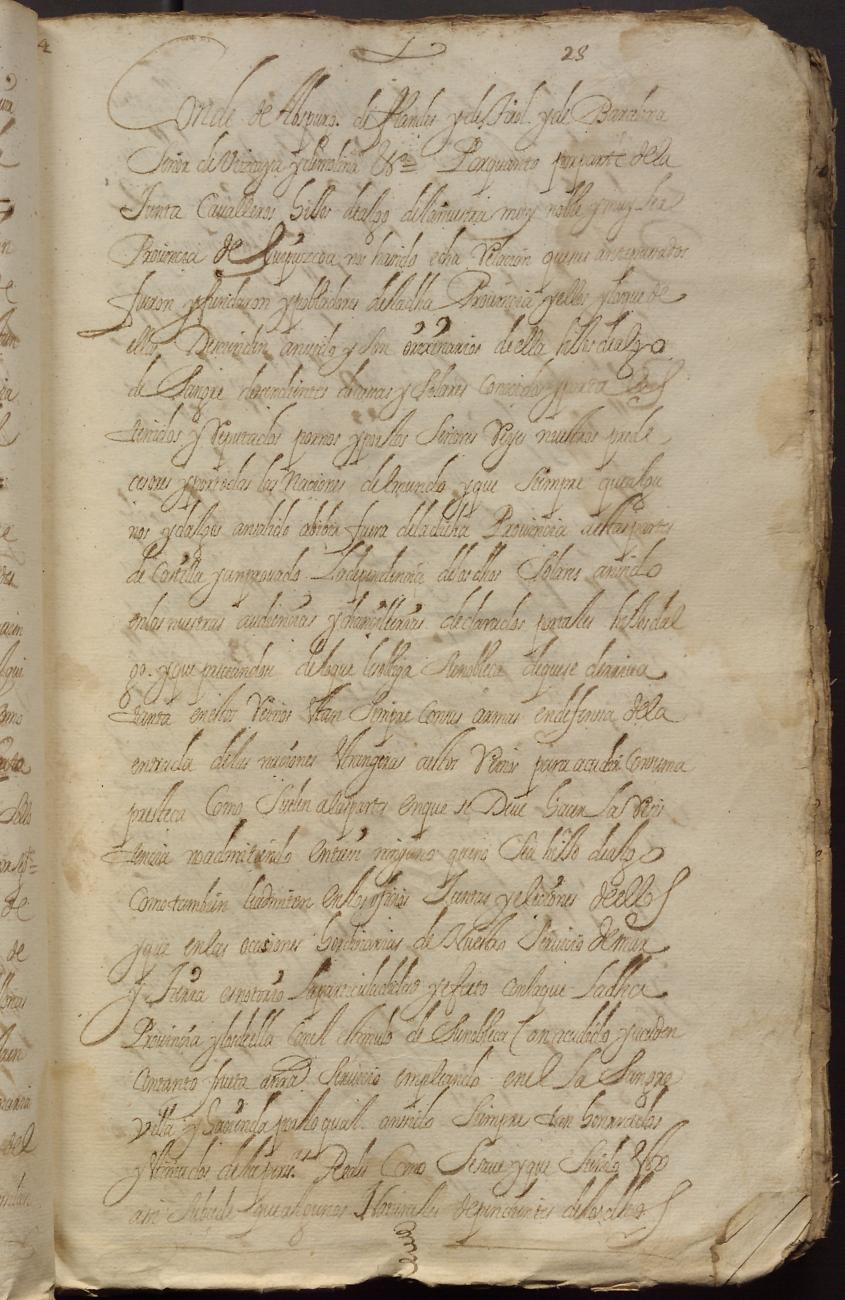 28
Conde de Abspurg. de flandes y de tirol. y de Barcelona
Señor de Vizcaya y de molina &ª Por quanto por parte de la
Junta Cavalleros hijos dealgo de la nuestra muy noble y muy leal
Provincia de Guipuzcoa nos ha sido echa Relacion que sus antepasados
fueron y fundaron y pobladores de la dha Provincia y ellos y los que de
ellos an sido y son originarios de ella hijos dealgo
de Sangre descendientes de casas y Solares Conocidos y por tales
tenidos y Reputados por nos y por los Señores Reyes nuestros prede
cesores y por todas las Naciones del mundo y que Siempre que algu
nos y dellos an salido abibir fuera de la dicha Provincia a estas partes
de Castilla y an provado La dependencia de los dhos Solares an sido
en las nuestras audiencias y chancillerias declarados por tales hijos dal
go. y que preciandose de lo que les obliga Su nobleça
tanta en estos Reinos Stan Siempre Con sus armas en defensa de la
entrada de las naciones estrangeras a estos Reinos para acudir Con suma
presteça Como Suelen a las partes en que se Deve hacer La Resis
tencia no admitiendo entre si ninguno que no Sea hijo dealgo
Como tambien le admiten en los oficios Juntas y electiones de ellos
y que en las ocasiones hordinarias de Nuestro Servicio de mar
y tierra es notorio la particularidad y efecto con la que La dha
Provincia y los de ella Con el estimulo de Su nobleca an acudido y acuden
Con tanto fruta a nro Servicio empleando en el La Sangre
vida y hacienda por lo qual an sido Siempre tan honrrados
y estimados de las persas Reales Como Se save y que Siendo esto
asi Sucede que algunos Naturales dependientes de los dhos